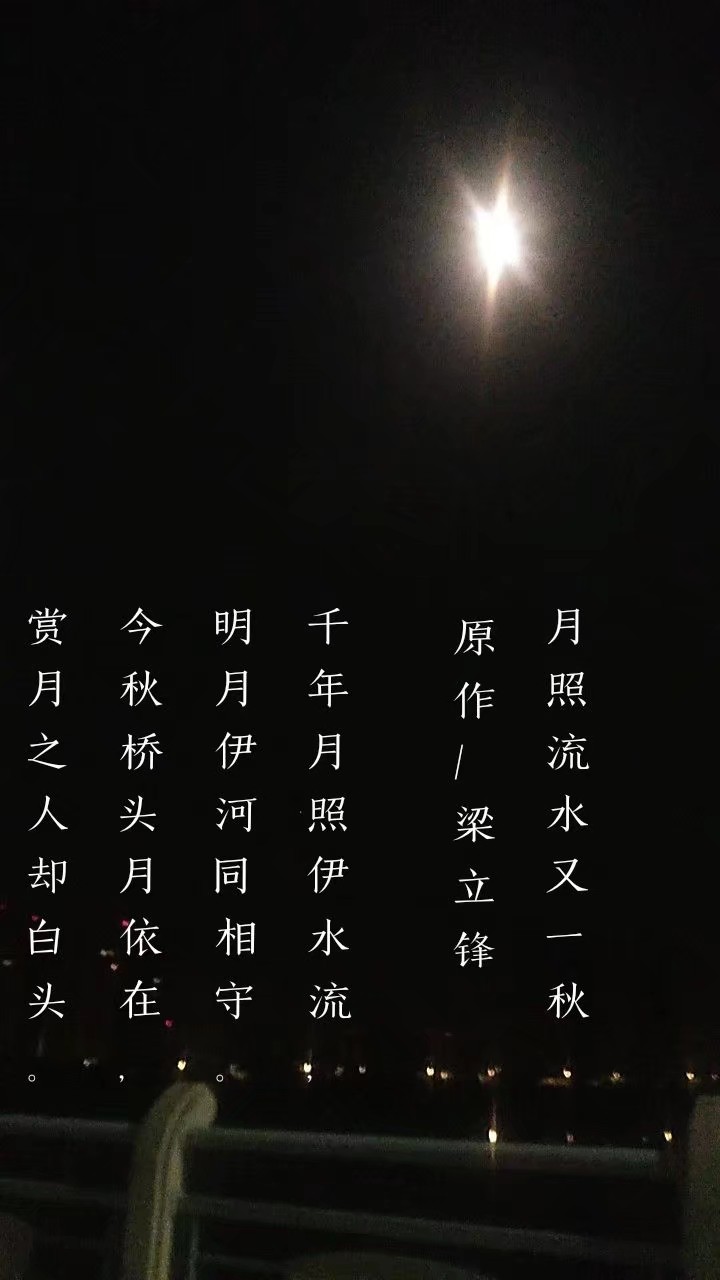 月照流水又一秋
原作/梁立锋
千年月照伊水流，
明月伊河同相守。
今秋桥头月依在，
赏月之人却白头。